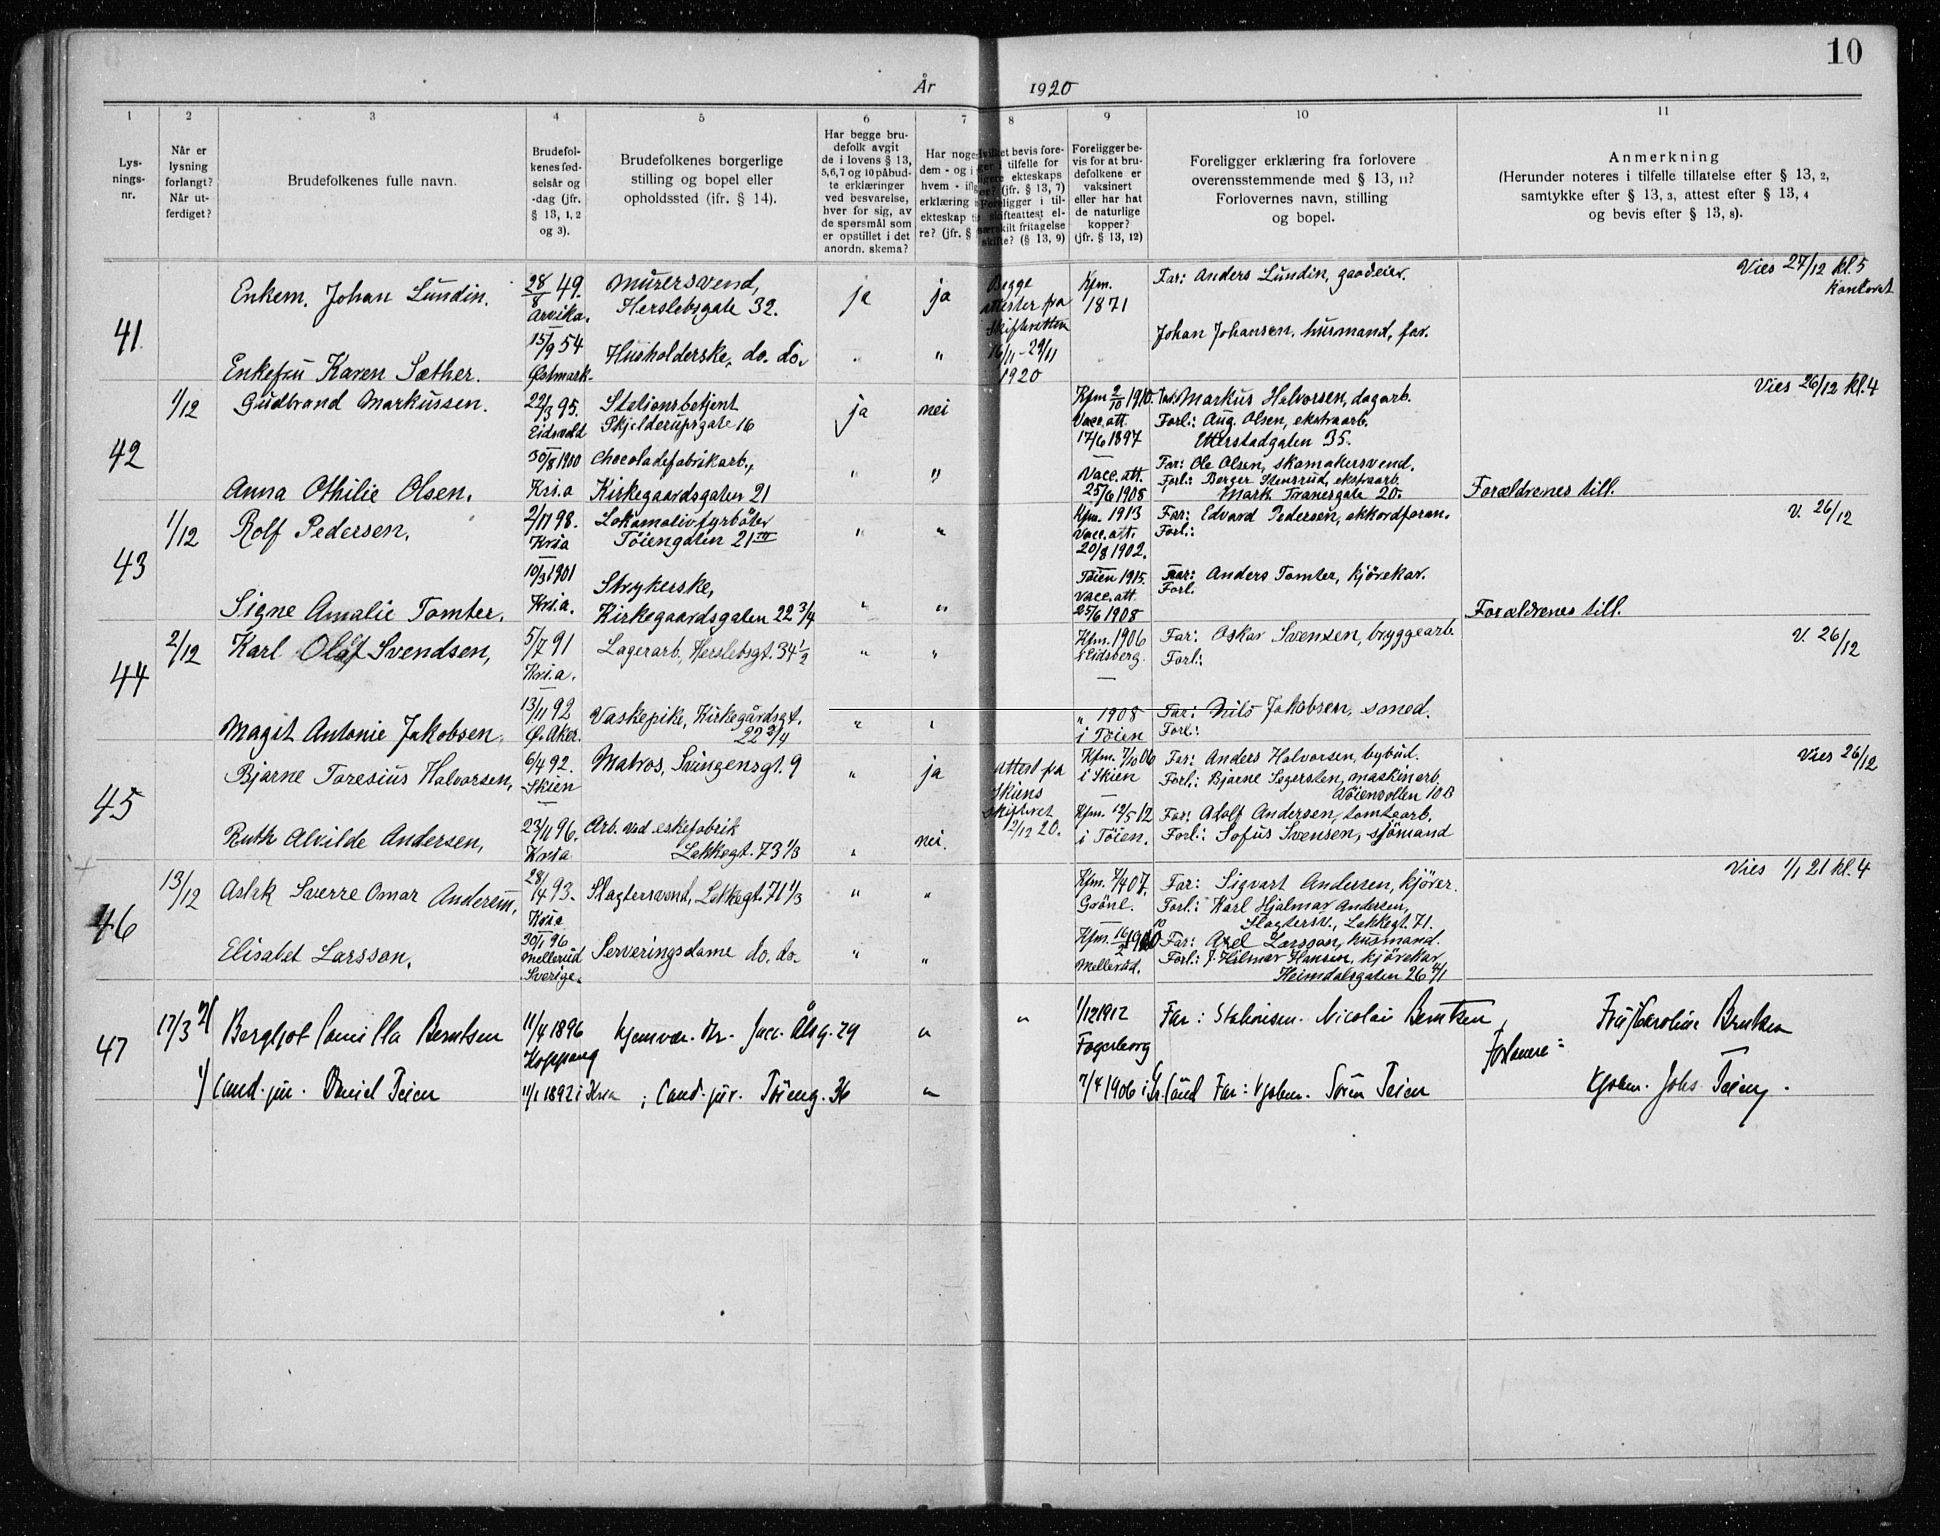 10
År 1920
1 2 3 4 5 6 7 8 9 10 11
Lys-
nings-
nr.
Når er
lysning
forlangt?
Når ut-
ferdiget?
Brudefolkenes fulle navn.
Brudefol-
kenes fød-
selsår og
-dag (jfr.
§ 13, 1, 2
og 3).
Brudefolkenes borgerlige
stilling og bopel eller
opholdssted (jfr. § 14).
Har begge bru-
defolk avgit
de i lovens § 13,
5, 6, 7 og 10 påbud-
te erklæringer
ved besvarelse,
hver for sig, av
de spørsmål som
er opstillet i det
anordn. skema?
Har noge
dem - og i
hvem - ifl
erklæring
ekteskap
re? (jfr. §
bevis fore-
i tilfelle for
ekteskaps
(jfr. § 13, 7)
Foreligger i til-
skifteattest el-
særskilt fritagelse
skifte? (§ 13, 9)
Foreligger be-
vis for at bru-
defolkene er
vaksinert
eller har hat
de naturlige
kopper?
(jfr. § 13, 12)
Foreligger erklæring fra forlovere
overensstemmende med § 13, 11?
Forlovernes navn, stilling
og bopel.
Anmerkning
(Herunder noteres i tilfelle tillatelse efter § 13, 2,
samtykke efter § 13, 3, attest efter § 13, 4
og bevis efter § 13, 8).
41
Enkem. Johan Lundin.
28/8 49.
Arvika.
Murersvend,
Herslebsgate 32.
ja
ja
Begge
attester fra
Skifteretten
16/11 - 29/11
1920
Kfm.
1871
Far: Anders Lundin, gaardeier.
Vies 27/12 kl. 5
kontoret
Enkefru Karen Sæther.
15/9 54
Østmark.
Husholderske, do. do.
"
Johan Johansen, husmand, far.
42
1/12
Gudbrand Markussen.
22/3 95.
Eidsvold
Stationsbetjent
Skjelderupsgate 16
ja
nei
Kfm 2/10 1910.
Vacc. att.
17/6 1897
Far: Markus Halvorsen, dagarb.
Forl.: Aug. Olsen, ekstraarb.
Etterstadgaten 35.
Vies 26/12 kl. 4
Anna Othilie Olsen.
30/8 1900
Kr.i.a
Chocoladefabrikarb.,
Kirkegaardsgaten 21
"
"
Vacc. att.
25/6 1908
Far: Ole Olsen, skomakersvend.
Forl.: Berger Stensrud, ekstraarb.
Mark Tranesgate 20.
Forældrenes till.
43
1/12
Rolf Pedersen,
2/11 98.
Kria
Lokomotivfyrbøter
Töiengaten 21 IV
"
"
Kfm. 1913
Vacc. att.
20/8 1902.
Far: Edvard Pedersen, akkordforan.
Forl.:
V. 26/12
Signe Amalie Tomter.
10/3 1901
Kr.i.a.
Strykerske,
Kirkegaardsgaten 22 3/4
"
"
Töien 1915.
Vacc. att.
25/6 1908
Far: Anders Tomter, kjörekar.
Forl.
Forældrenes till.
44
2/12
Karl Olaf Svendsen,
5/7 91
Kr.i.a.
Lagerarb., Herslebsgt. 34 1/2
"
"
Kfm. 1906
i Eidsberg.
Far: Oskar Svensen, bryggearb.
Forl.:
V. 26/12
Magit Antonie Jakobsen.
13/11 92
Ø. Aker.
Vaskepike, Kirkegårdsgt.
22 3/4
"
"
" 1908
i Töien
Far: Nils Jakobsen, smed.
Forl.:
45
Bjarne Toresius Halvorsen,
6/4 92.
Skien
Matros, Svingensgt. 9
"
ja
Attest fra
Skiens
skifteret
2/12 20.
Kfm. 7/10 06
i Skien
Far: Anders Halvorsen, bybud.
Forl.: Bjarne Segersten, maskinarb.
Vöienvollen 10 B
Vies 26/12
Ruth Alvilde Andersen,
23/11 96.
Kria
Arb. ved eskefabrik
Lakkegt. 73 1/3
"
nei.
Kfm. 12/5 12
i Töien.
Far: Adolf Andersen, tomtearb.
Forl.: Sofus Svensen, sjömand
46
13/12
Aslak Sverre Omar Andersen,
28/4 93.
Kria
Slagtersvend, Lakkegt. 71 1/3
"
"
Kfm. 7/4 07.
Grönl.
Far: Sigvart Andersen, kjörer.
Forl.: Karl Hjalmar Andersen,
Slagtersv., Lakkegt. 71.
Vies 1/1 21 kl. 4
Elisabet Larsson.
30/1 96
Mellerud
Sverige.
Serveringsdame do. do.
"
"
Kfm. 16/2 1910
Mellerud.
Far: Axel Larsson, husmand.
Forl.: J. Hilmar Hansen, kjörekar
Heimdalsgaten 26 4/1
47
17/3 21
Bergljot Camilla Berntsen
11/4 1896
Koppang
Hjemvær. Dr. Jac. Ålsg. 29
"
"
1/12 1912
Fagerborg
Far: Stationsm. Nicolai Berntsen
Forlovere:
Fru Karoline Berntsen
Cand. jur. Daniel Teien
11/1 1892 i Kria
Cand. jur. Töieng. 36
"
7/4 1906 i
Far: Kjøbm. Sören Teien
Kjøbm. Johs Teien.